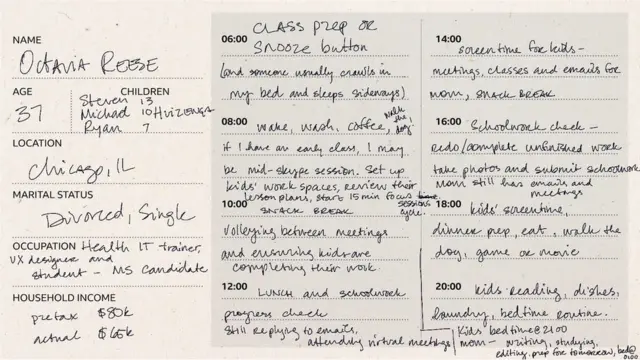 NAME
Octavia Reese
AGE
37
CHILDREN
Steven 13
Michael 10 Huizenga
Ryan 7
LOCATION
Chicago, IL
MARITAL STATUS
Divorced, Single
OCCUPATION Health IT trainer,
UX designer and
student - MS Candidate
HOUSEHOLD INCOME
pretax $80k
actual $65k
06:00 CLASS prep or
SNOOZE button
(and someone usually crawls in
my bed and sleeps sideways)
08:00 wake, wash, coffee, walk the dog
if I have an early class, I may
be mid-skype session. Set up
kids' work spaces, review their
lesson plans, start 15 min focus sessions
cycle.
10:00 SNACK BREAK
volleying between meetings
and ensuring kids are
completing their work.
12:00 LUNCH and schoolwork
progress check
still replying to emails,
attending virtual meetings
14:00
screentime for kids -
meetings, classes and emails for
mom, SNACK BREAK
16:00 Schoolwork check -
redo/complete unfinished work
take photos and submit schoolwork
Mom still has emails and
meetings
18:00 kids' screentime,
dinner prep, eat, walk the
dog, game or movie
20:00 kids reading, dishes,
laundry, bedtime routine.
Kids bedtime@2100
mom - writing, studying,
editing, prep for tomorrow, bed@
0100